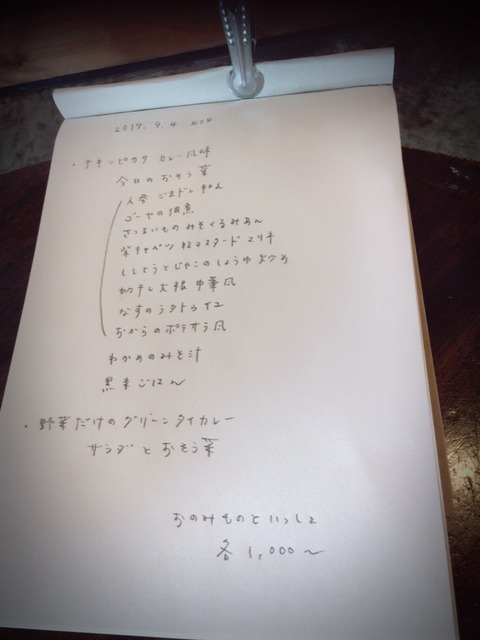 2017. 9. 4 MON
・チキンピカタ カレー風味
今日のおそう菜
人参 ごまドレ和え
ゴーヤの佃煮
さつまいものみそくるみあん
紫キャベツ 粒マスタード マリネ
ししとうとじゃこのしょうゆ炒め
切干し大根 中華風
なすのラタトゥイユ
おからのポテサラ風
わかめのみそ汁
黒米ごはん
・野菜だけのグリーンタイカレー
サラダとおそう菜
おのみものといっしょ
各 1,000〜